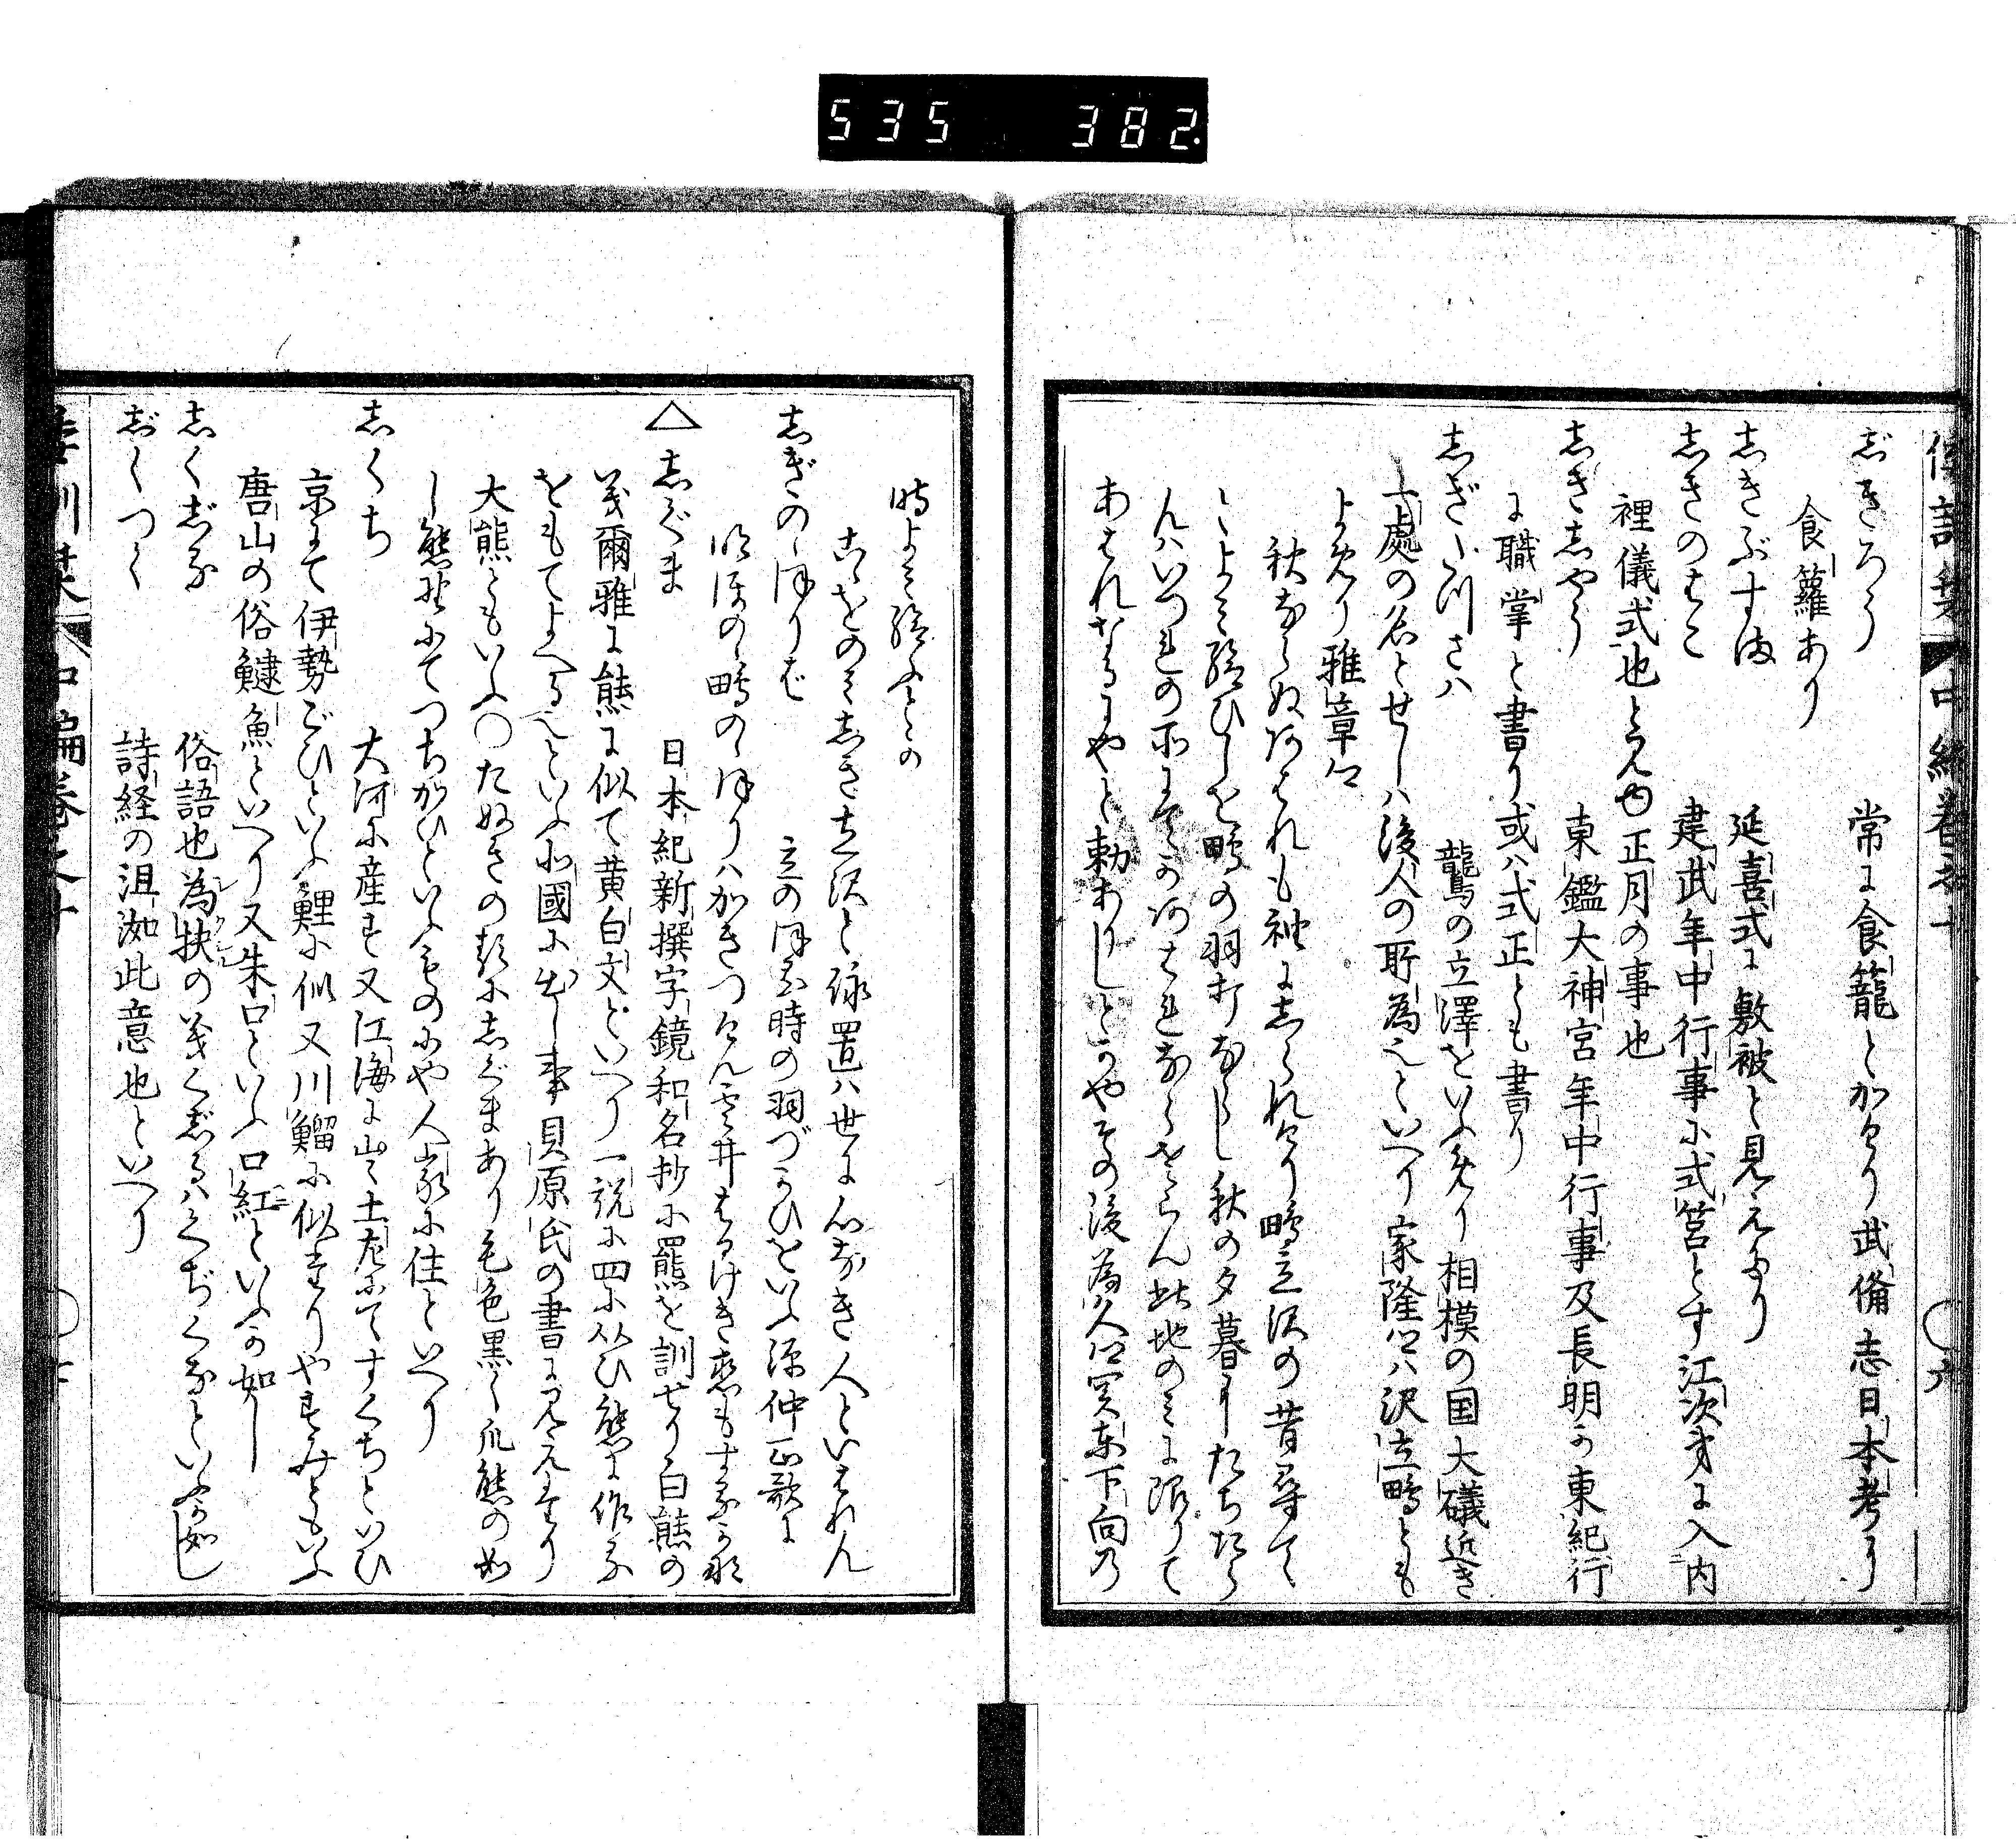 535 382.
倭訓栞 中編巻之十
じきろう 常に食籠とかけり武備志日本考に
食籮あり
しきぶすま 延喜式に敷被と見えたり
しきのはこ 建武年中行事に式筥とす江次第に入内
裡儀式也とみゆ正月の事也
しきしやう 東鑑大神宮年中行事及長明か東紀行
に職掌と書り或ハ式正とも書り
しぎたつさハ 鷸の立澤をいふ成り相模の国大礒近き
一處の名とせしハ後人の所為也といへり家隆卿ハ沢立鴫とも
よめり雅章卿
秋ならぬあはれも袖にしられけり鴫立沢の昔尋て
とよみ給ひしを鴫の羽打ならし秋の夕暮にたちたら
んハいつれの所にてかあはれならさらん此地のみに限りて
あはれなるにやと勅ありしとかやその後為久卿関東下向の
時よみ給ふとの
あはをのみしき立沢と詠置ハ世に心なき人といはれん
しぎのゝぼりば 立のほる時の羽づかひをいふ源仲正歌に
明ほのゝ鴫のゝほりハかきつらん雲井はるけき恋もするかな
△しぐま 日本紀新撰字鏡和名抄に羆を訓せり白熊の
義爾雅に熊に似て黄白文といへり一説に四に从ひ熊に作る
をもてよべる也といふ北國に出し事貝原氏の書に見えたり
大熊ともいふ〇たぬきの類にしぐまあり毛色黒く爪熊の如
し熊野にてつちかひといふものにや人家に住といへり
しくち 大河に産す又江海に出て土左にてすくちといひ
京にて伊勢ごひといふ鯉に似又川鰡に似たりやすみともいふ
唐山の俗鱁魚といへり又朱口といふ口紅といふか如し
しくじる 俗語也為抉の義くじるハくぢくるといふか如し
じくつく 詩経の沮洳此意也といへり
倭訓栞 中編巻之十